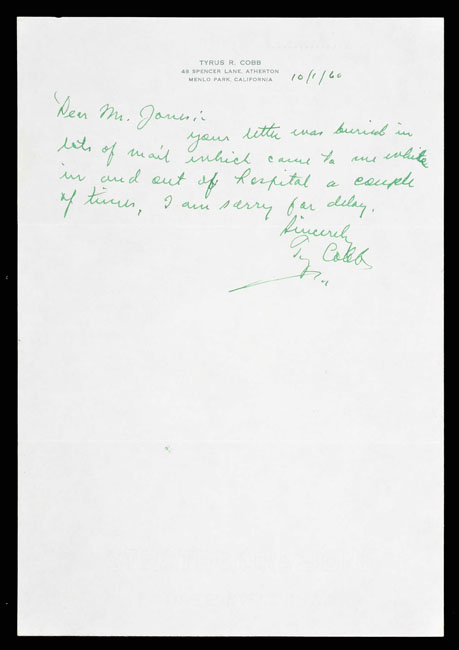 TYRUS R. COBB
48 SPENCER LANE, ATHERTON
MENLO PARK, CALIFORNIA
10/1/60
Dear Mr. Jones:
your letter was buried in
lots of mail which came to me while
in and out of hospital a couple
of times, I am sorry for delay.
Sincerely
Ty Cobb